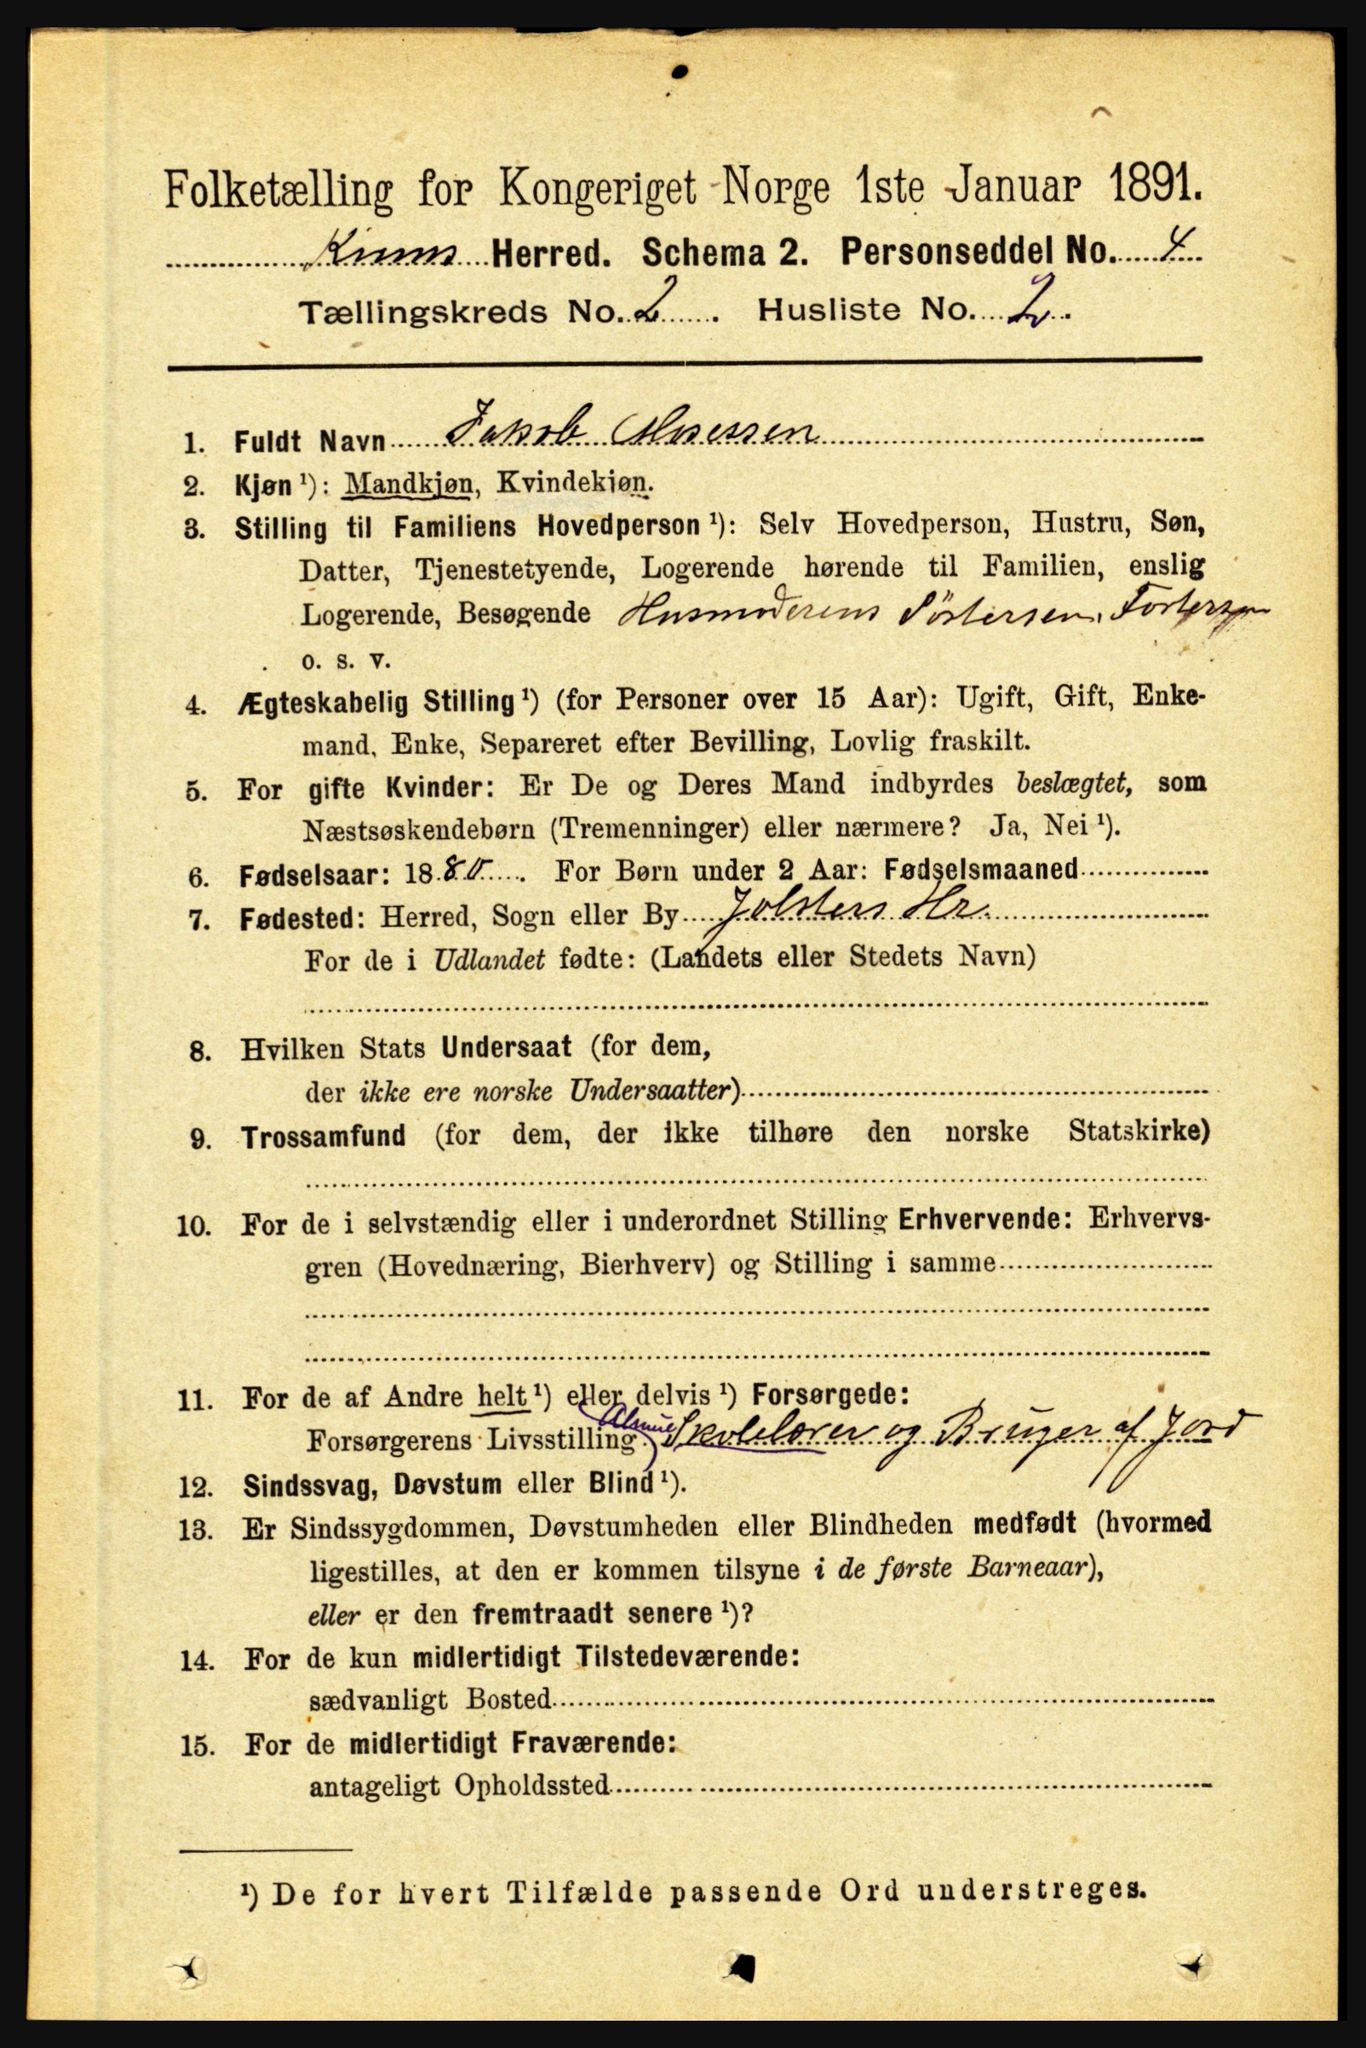 Folketælling for Kongeriget Norge 1ste Januar 1891.
Kinns Herred. Schema 2. Personseddel No. 4
Tællingskreds No. 2. Husliste No. 2.
1. Fuldt Navn Jakob Mosessen
2. Kjøn ¹): Mandkjøn, Kvindekjøn.
3. Stilling til Familiens Hovedperson ¹): Selv Hovedperson, Hustru, Søn,
Datter, Tjenestetyende, Logerende hørende til Familien, enslig
Logerende, Besøgende Husmoderens Söstersøn, Fostersøn
o. s. v.
4. Ægteskabelig Stilling ¹) (for Personer over 15 Aar): Ugift, Gift, Enke-
mand, Enke, Separeret efter Bevilling, Lovlig fraskilt.
5. For gifte Kvinder: Er De og Deres Mand indbyrdes beslægtet, som
Næstsøskendebørn (Tremenninger) eller nærmere? Ja, Nei ¹).
6. Fødselsaar: 1880. For Børn under 2 Aar: Fødselsmaaned
7. Fødested: Herred, Sogn eller By Jolsters Hr.
For de i Udlandet fødte: (Landets eller Stedets Navn)
8. Hvilken Stats Undersaat (for dem,
der ikke ere norske Undersaatter)
9. Trossamfund (for dem, der ikke tilhøre den norske Statskirke)
10. For de i selvstændig eller i underordnet Stilling Erhvervende: Erhvervs-
gren (Hovednæring, Bierhverv) og Stilling i samme
11. For de af Andre helt ¹) eller delvis ¹) Forsørgede:
Almue
Forsørgerens Livsstilling Skolelærer og Bruger af Jord
12. Sindssvag, Døvstum eller Blind ¹).
13. Er Sindssygdommen, Døvstumheden eller Blindheden medfødt (hvormed
ligestilles, at den er kommen tilsyne i de første Barneaar),
eller er den fremtraadt senere ¹)?
14. For de kun midlertidigt Tilstedeværende:
sædvanligt Bosted
15. For de midlertidigt Fraværende:
antageligt Opholdssted
¹) De for hvert Tilfælde passende Ord understreges.